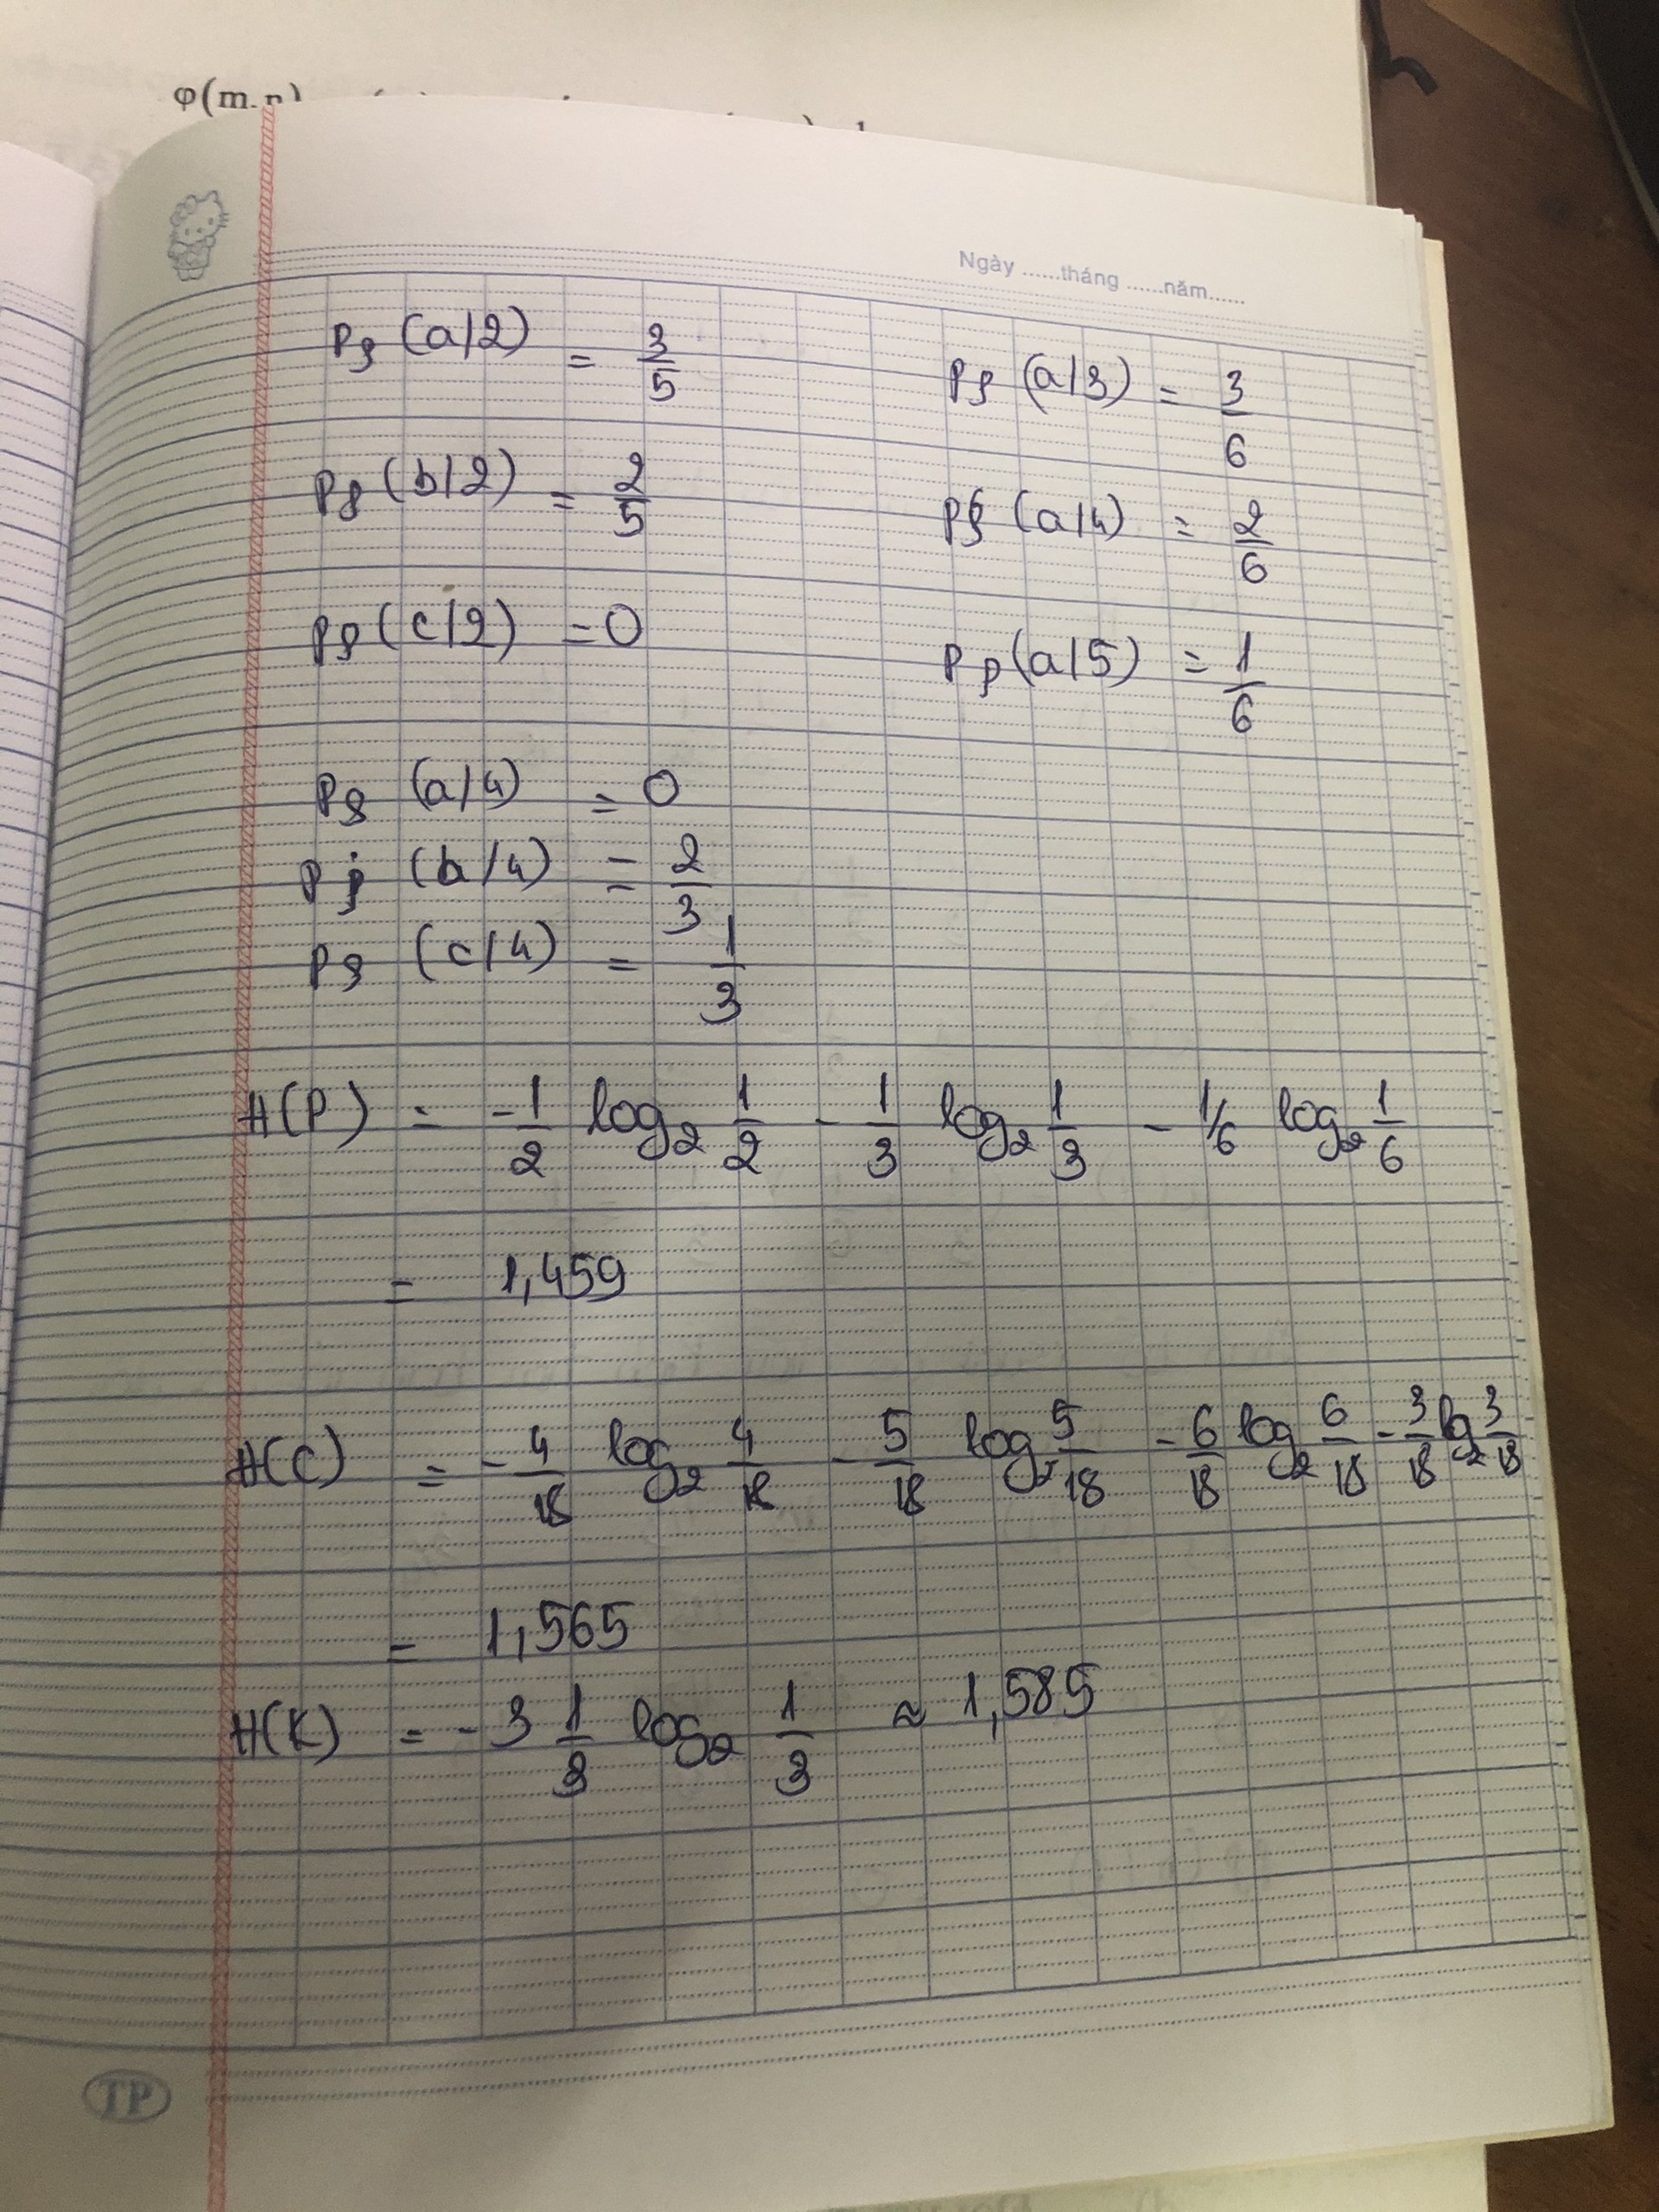 φ(m,n)
Ngày ......tháng ......năm......
Pρ (a/2) = 3/5
Pρ (a/3) = 3/6
Pρ (b/2) = 2/5
Pρ (a/4) = 2/6
Pρ (c/2) = 0
Pρ (a/5) = 1/6
Pρ (a/4) = 0
Pρ (b/4) = 2/3
Pρ (c/4) = 1/3
H(P) = -1/2 log₂ 1/2 - 1/3 log₂ 1/3 - 1/6 log₂ 1/6
= 1,459
H(C) = - 4/18 log₂ 4/18 - 5/18 log₂ 5/18 - 6/18 log₂ 6/18 - 3/18 log₂ 3/18
= 1,565
H(K) = - 3 1/3 log₂ 1/3 ≈ 1,585
TP